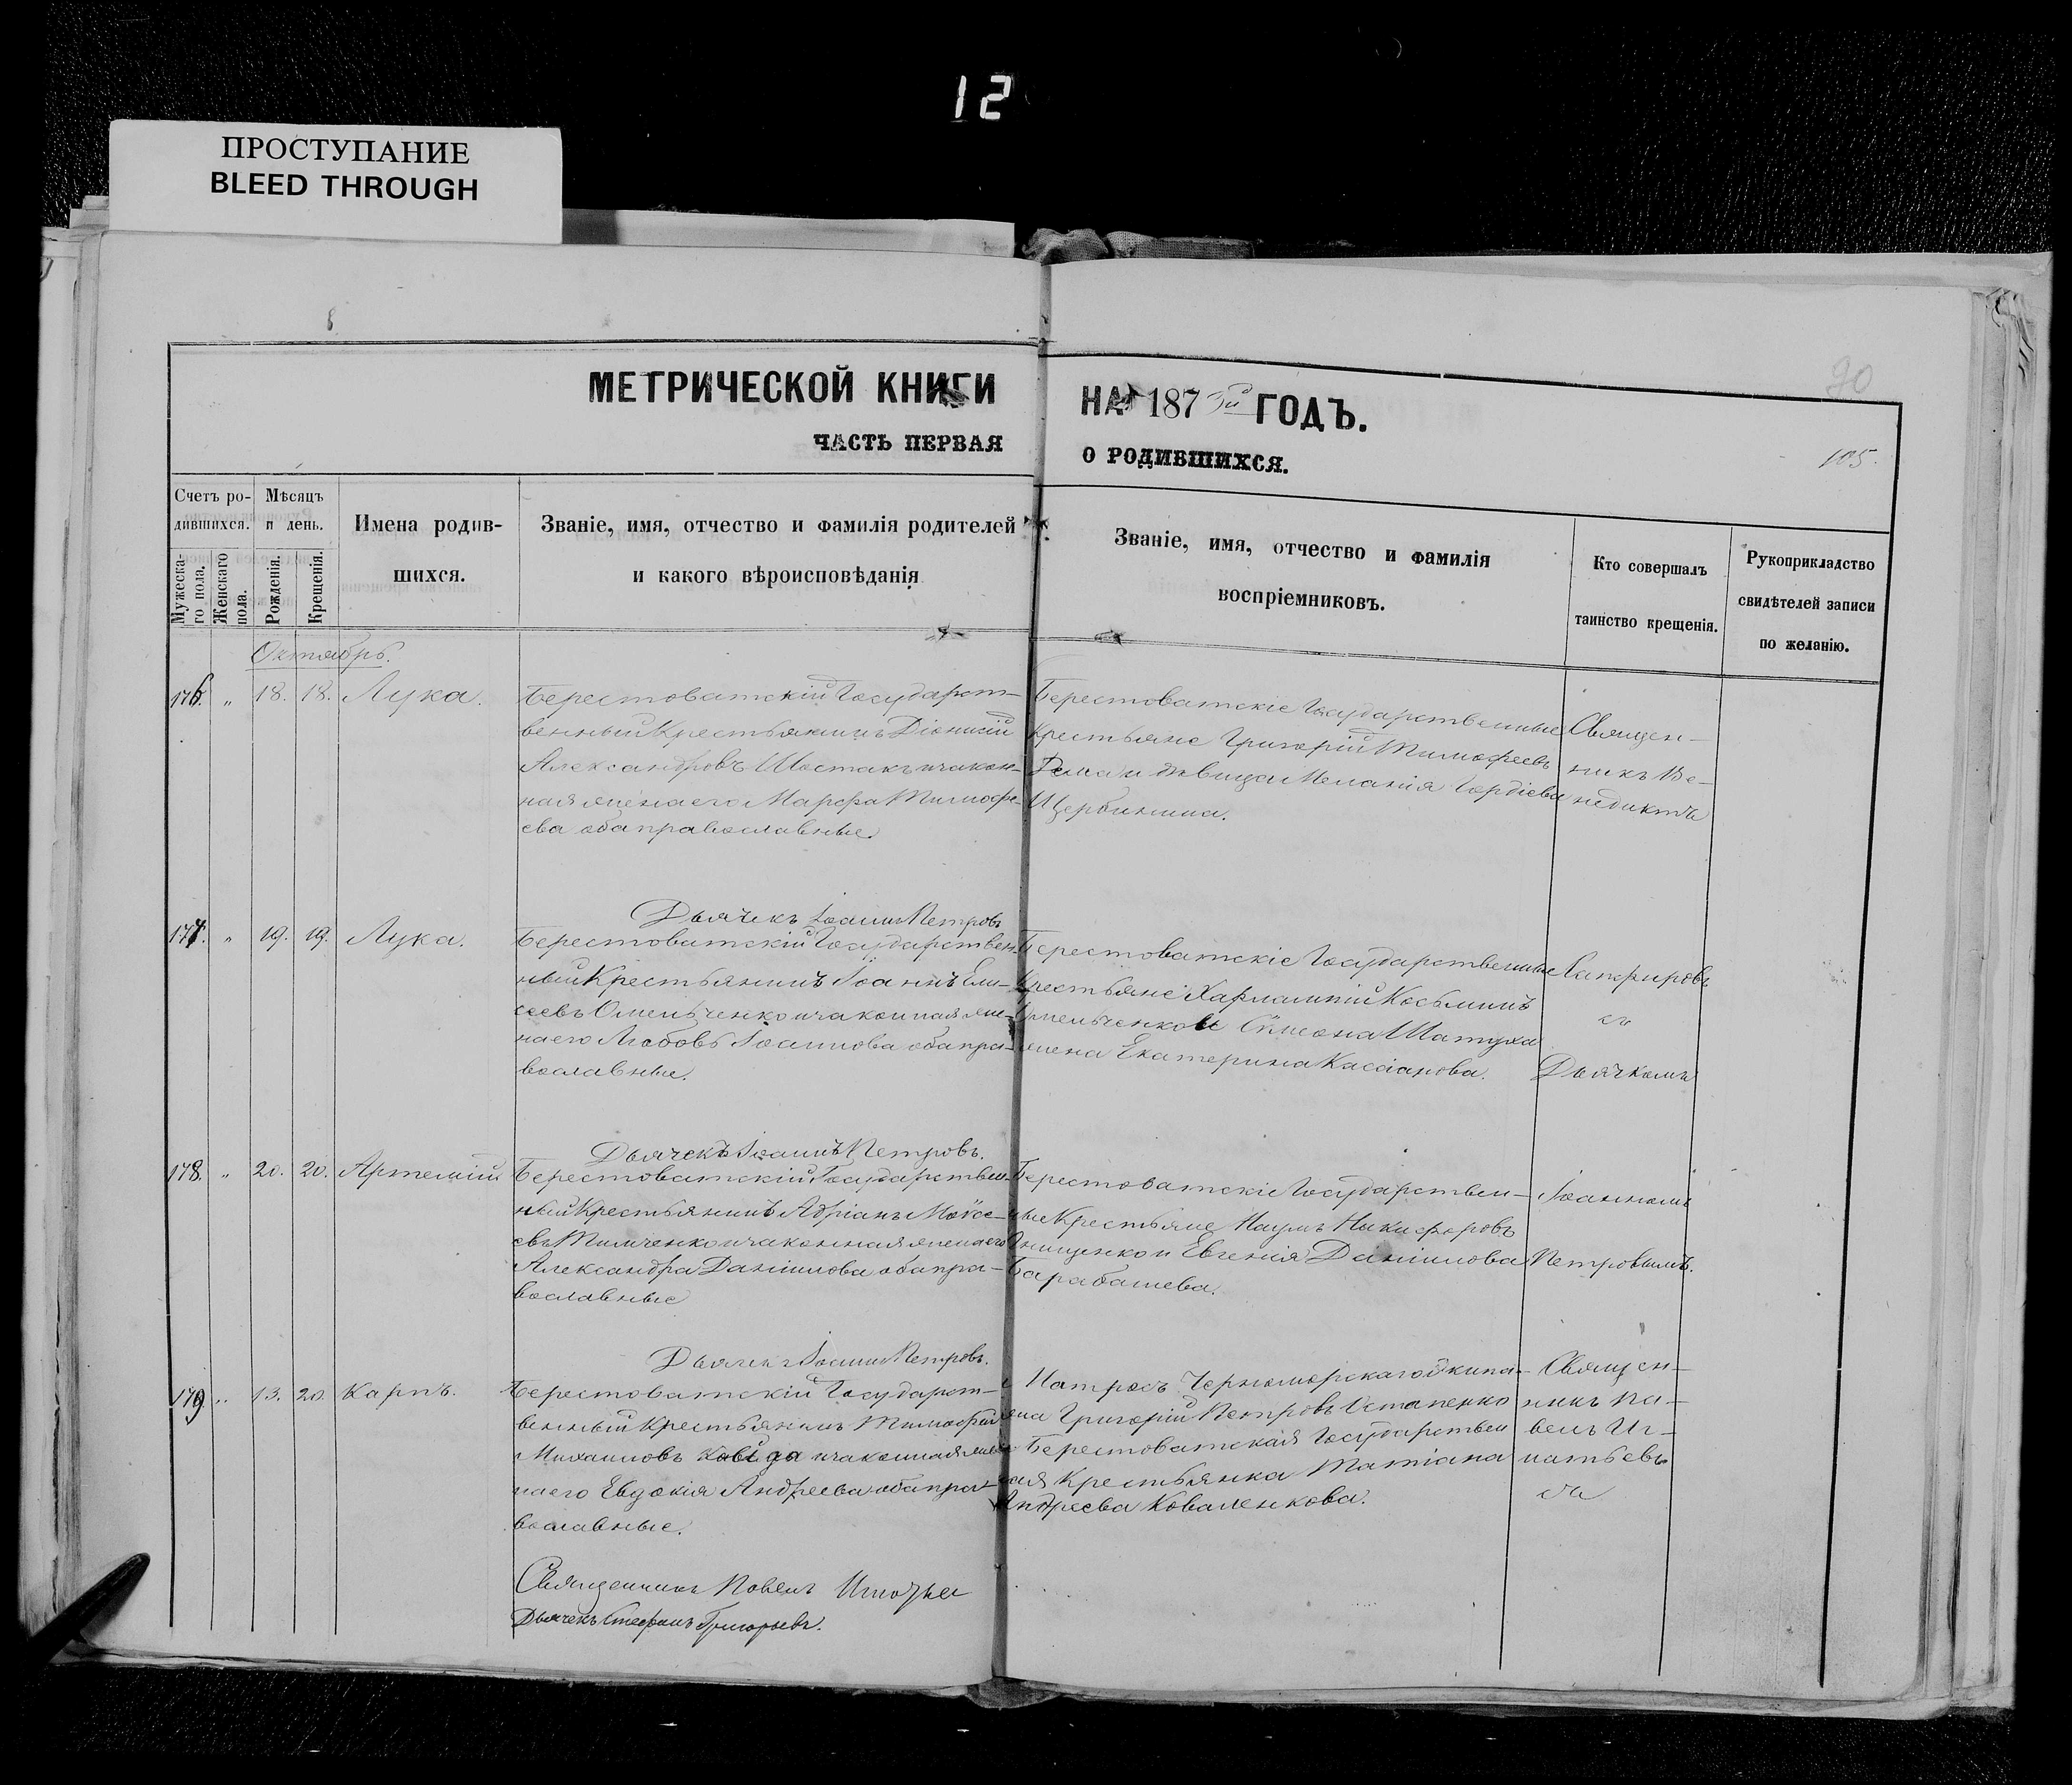 12
ПРОСТУПАНИЕ
BLEED THROUGH
90
МЕТРИЧЕСКОЙ КНИГИ НА 1873й ГОДЪ.
ЧАСТЬ ПЕРВАЯ О РОДИВШИХСЯ.
105.
Счетъ ро-
дившихся.
Мужеска-
го пола.
Женскаго
пола.
Мѣсяцъ
и день.
Рожденія.
Крещенія.
Имена родив-
шихся.
Званіе, имя, отчество и фамилія родителей
и какого вѣроисповѣданія
Званіе, имя, отчество и фамилія
воспріемниковъ.
Кто совершалъ
таинство крещенія.
Рукоприкладство
свидѣтелей записи
по желанію.
Октябрь.
176. " 18. 18. Лука.
Берестоватскій Государст-
венный Крестьянинъ Діонисій
Александровъ Шостакъ и закон-
ная жена его Марфа Тимофе-
ева оба православные.
Берестоватскіе Государственные
Крестьяне Григорій Тимофеевъ
и дѣвица Меланія Гордіева
Щербинина.
Священ-
никъ Ве-
недиктъ
Дьячекъ Іоаннъ Петровъ
177. " 19. 19. Лука.
Берестоватскій Государствен-
ный Крестьянинъ Іоаннъ Ели-
сеевъ Омельченко и законная же-
на его Любовь Іоаннова оба пра-
вославные.
Берестоватскіе Государственные
Крестьяне Харлампій Косьминъ
Омельченко и Симеона Шатуха
жена Екатерина Кассіанова.
Сапфировъ
съ
Дьячкомъ
Дьячекъ Іоаннъ Петровъ.
178. " 20. 20. Артемій
Берестоватскій Государствен-
ный Крестьянинъ Адріанъ Моѵсе-
евъ Тимченко и законная жена его
Александра Даніилова оба пра-
вославные
Берестоватскіе Государствен-
ные Крестьяне Наумъ Никифоровъ
Онищенко и Евгенія Даніилова
Барабашева.
Іоанномъ
Петровымъ.
Дьячекъ Іоаннъ Петровъ.
179 " 13. 20. Карпъ.
Берестоватскій Государст-
венный Крестьянинъ Тимофей
Михаиловъ и законная же-
на его Евдокія Андреева оба пра-
вославные.
Матросъ Черноморскаго экипа-
жа Григорій Петровъ Остапенко
и Берестоватская Государствен
ная Крестьянка Татіана
Андреева Коваленкова.
Священ-
никъ Па-
велъ Иг-
натьевъ
съ
Священникъ Павелъ Игнатьев
Дьячекъ Стефанъ Григорьевъ.